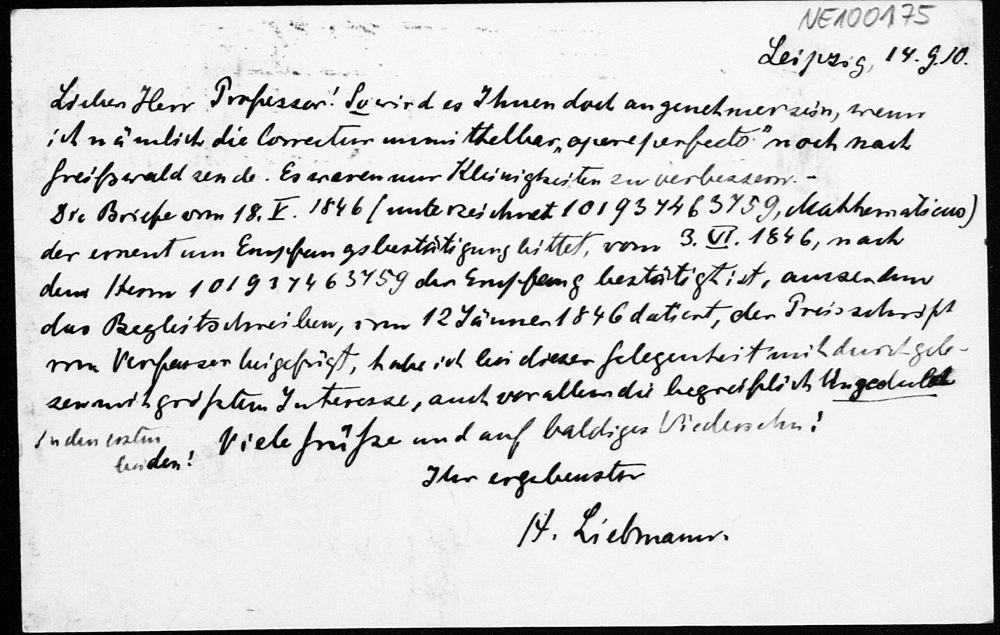 NE100175
Leipzig, 14.9.10.
Lieber Herr Professor! So wird es Ihnen doch angenehmer sein, wenn
ich nämlich die Correctur unmittelbar „opere perfecto" noch nach
Greifswald sende. Es waren nur Kleinigkeiten zu verbessern. –
Die Briefe vom 18. V. 1846 (unterzeichnet 101937463759, Mathematicus)
der erneut um Empfangsbestätigung bittet, vom 3. VI. 1846, nach
dem Herrn 101937463759 der Empfang bestätigt ist, ausserdem
das Begleitschreiben, vom 12 Jänner 1846 datiert, der Preisschrift
vom Verfasser beigefügt, habe ich bei dieser Gelegenheit mit durchgele-
sen mit größtem Interesse, auch vor allem die begreiflich Ungeduld
In den ersten
beiden!
Viele Grüße und auf baldiges Wiedersehn!
Ihr ergebenster
H. Liebmann.